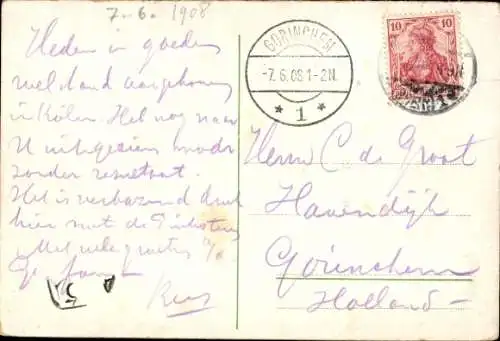 7-6. 1908
Heden in goeden
welstand aangekomen
in Köln. Heb nog naar
U uitgezien maar
zonder resultaat.
Het is verbazend druk
hier met de
Met vele groeten
Kees
GORINCHEM
-7.6.08.1-2N.
* 1 *
10 10
Herrn C de Groot
Havendijk
Gorinchem
Holland-